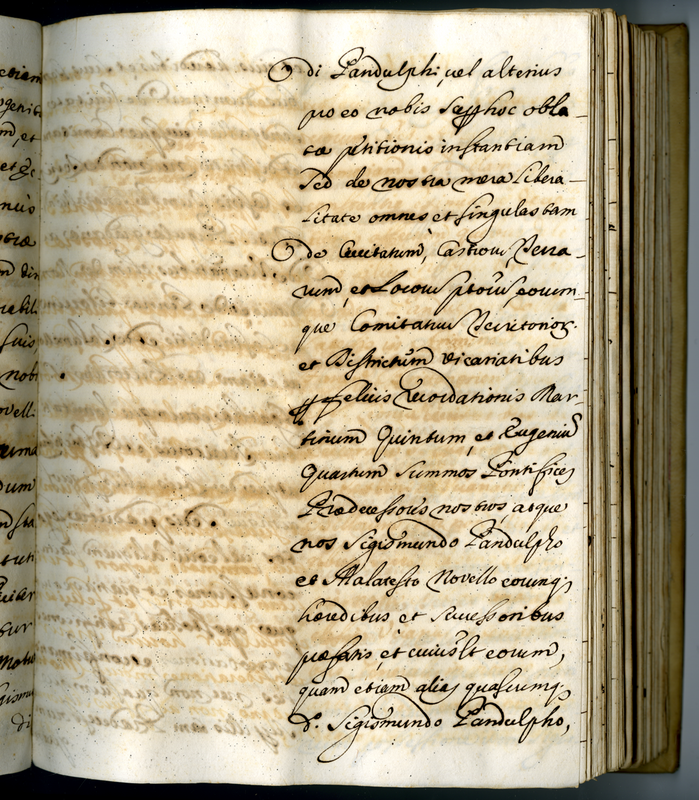 etiam
et
di Pandulphi, vel alterius
pro eo nobis super hoc obla-
tæ petitionis instantiam
sed de nostra mera libera-
litate omnes et singulas tam
de Civitatum, Castrorū, Terra-
rum, et Locorū ptorū, eorum-
que Comitatus Territorioꝝ.
et Districtum Vicariatibus
felicis Recordationis Mar-
tinum Quintum, et Eugeniū
Quartum Summos Pontifices
Prædecessores nostros, atque
nos Sigismundo Pandulpho
et Malatesta Novello eorunq;
hæredibus et successoribus
præfatis, et cuiuslt eorum,
quam etiam alias quascumq;
d.º Sigismundo Pandulpho,
dum
Motu
di